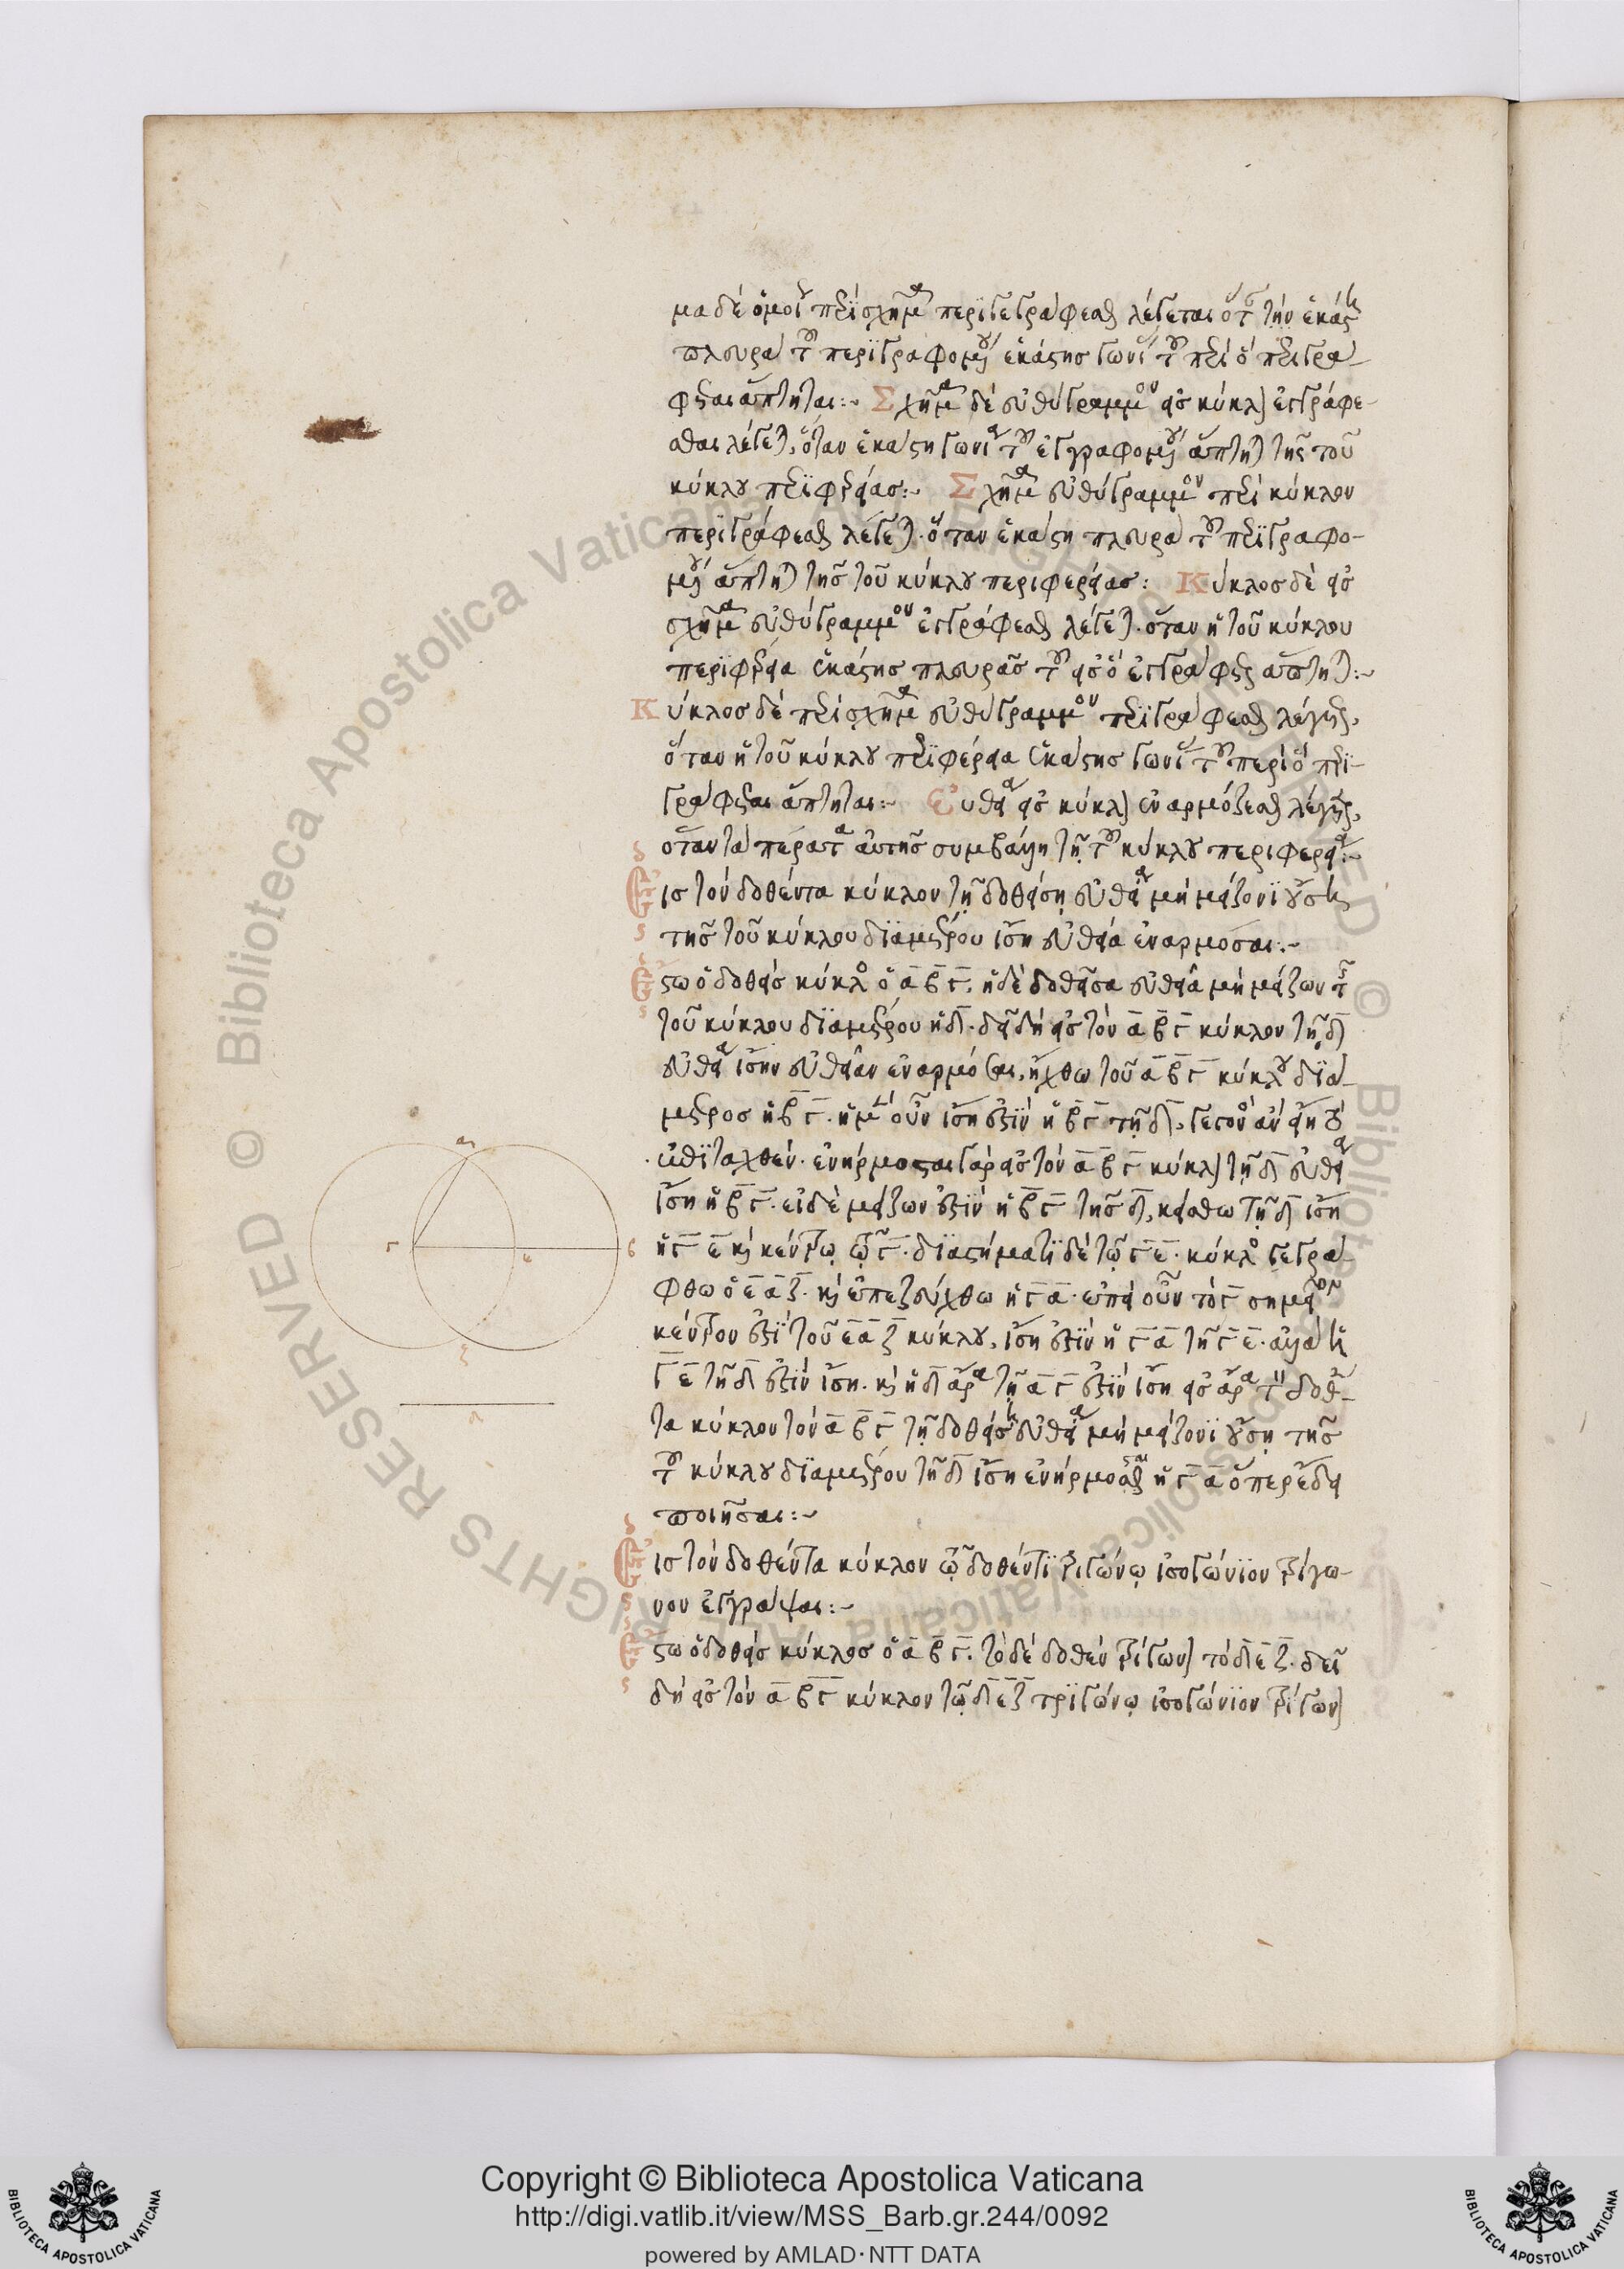 μα δὲ ὁμοί περὶ σχῆμα περιγεγράφεσθαι λέγεται ὅτ τὴν ἑκάς
πλευρὰ τοῦ περιγραφομένου ἑκάστης γωνί τοῦ περὶ ὃ περιγρά-
φεται ἅπτηται:~ Σχῆμα δὲ εὐθύγραμμον εἰς κύκλον ἐγγράφε-
σθαι λέγεται, ὅταν ἑκάστη γωνία τοῦ ἐγγραφομένου ἅπτηται τῆς τοῦ
κύκλου περιφερείας:~ Σχῆμα εὐθύγραμμον περὶ κύκλον
περιγράφεσθαι λέγεται. ὅταν ἑκάστη πλευρὰ τοῦ περιγραφο-
μένου ἅπτηται τῆς τοῦ κύκλου περιφερείας: Κύκλος δὲ εἰς
σχῆμα εὐθύγραμμον ἐγγράφεσθαι λέγεται. ὅταν ἡ τοῦ κύκλου
περιφέρεια ἑκάστης πλευρᾶς τοῦ εἰς ὃ ἐγγράφεται ἅπτηται:~
Κύκλος δὲ περὶ σχῆμα εὐθύγραμμον περιγράφεσθαι λέγεται,
ὅταν ἡ τοῦ κύκλου περιφέρεια ἑκάστης γωνί τοῦ περὶ ὃ περι-
γράφεται ἅπτηται:~ Εὐθεῖα εἰς κύκλον ἐναρμόζεσθαι λέγεται,
ὅταν τὰ πέρατα αὐτῆς συμβαίνῃ τῇ τοῦ κύκλου περιφερεία:~
Εἰς τὸν δοθέντα κύκλον τῇ δοθείσῃ εὐθεία μὴ μείζονι οὔσῃ
τῆς τοῦ κύκλου διαμέτρου ἴση εὐθεία ἐναρμόσαι:~
Ἔστω ὁ δοθεὶς κύκλος ὁ α β γ. ἡ δὲ δοθεῖσα εὐθεῖα μὴ μείζων τῆς
τοῦ κύκλου διαμέτρου ἡ δ. δεῖ δὴ εἰς τὸν α β γ κύκλον τῇ δ
εὐθεία ἴσην εὐθεῖαν ἐναρμόσαι. ἤχθω τοῦ α β γ κύκλου διά-
μετρος ἡ β γ. ἡ μὲν οὖν ἴση ἐστὶν ἡ β γ τῇ δ, γεγονὸς ἂν εἴη τὸ
ἐπιταχθέν. ἐνήρμοσται γὰρ εἰς τὸν α β γ κύκλον τῇ δ εὐθεία
ἴση ἡ β γ. εἰ δὲ μείζων ἐστὶν ἡ β γ τῆς δ, κείσθω τῇ δ ἴση
ἡ γ ε καὶ κέντρῳ τῷ γ. διαστήματι δὲ τῷ γ ε. κύκλος γεγρά-
φθω ὁ ε α ζ. καὶ ἐπεζεύχθω ἡ γ α. ἐπεὶ οὖν τὸ γ σημεῖον
κέντρον ἐστὶ τοῦ ε α ζ κύκλου, ἴση ἐστὶν ἡ γ α τῇ γ ε. ἀλλὰ ἡ
γ ε τῇ δ ἐστὶν ἴση. καὶ ἡ δ ἄρα τῇ α γ ἐστὶν ἴση εἰς ἄρα τὸν δοθέν-
τα κύκλον τὸν α β γ τῇ δοθείσῃ εὐθεία μὴ μείζονι οὔσῃ τῆς
τοῦ κύκλου διαμέτρου τῇ δ ἴση ἐνήρμοσται ἡ γ α ὅπερ ἔδει
ποιῆσαι:~
Εἰς τὸν δοθέντα κύκλον τῷ δοθέντι τριγώνῳ ἰσογώνιον τρίγω-
νον ἐγγράψαι:~
Ἔστω ὁ δοθεὶς κύκλος ὁ α β γ. τὸ δὲ δοθὲν τρίγωνον τὸ δ ε ζ. δεῖ
δὴ εἰς τὸν α β γ κύκλον τῷ δ ε ζ τριγώνῳ ἰσογώνιον τρίγωνον
α
γ
ε
β
ζ
δ
Copyright © Biblioteca Apostolica Vaticana
http://digi.vatlib.it/view/MSS_Barb.gr.244/0092
powered by AMLAD·NTT DATA
BIBLIOTECA APOSTOLICA VATICANA
BIBLIOTECA APOSTOLICA VATICANA